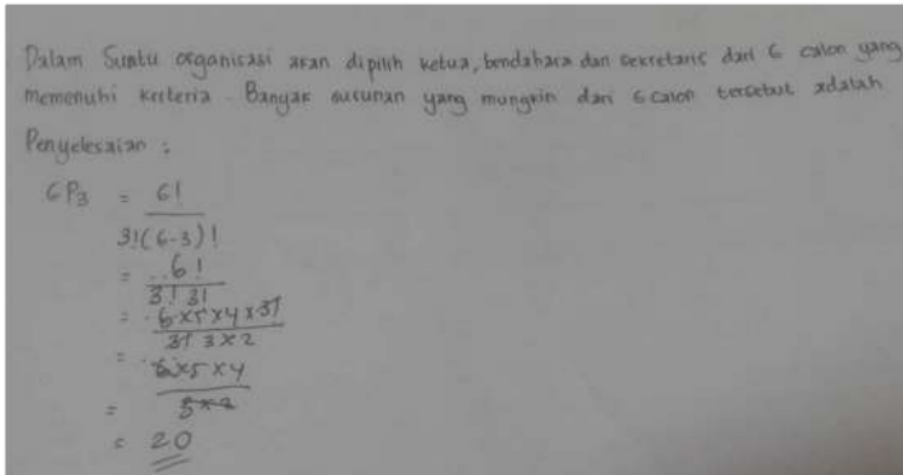 Dalam Suatu organisasi akan dipilih ketua, bendahara dan sekretaris dari 6 calon yang
memenuhi kriteria. Banyak susunan yang mungkin dari 6 calon tersebut adalah
Penyelesaian :
6P3 = 6!
3!(6-3)!
= 6!
3! 3!
= 6×5×4×3!
3! 3×2
= 6×5×4
3×2
=
= 20